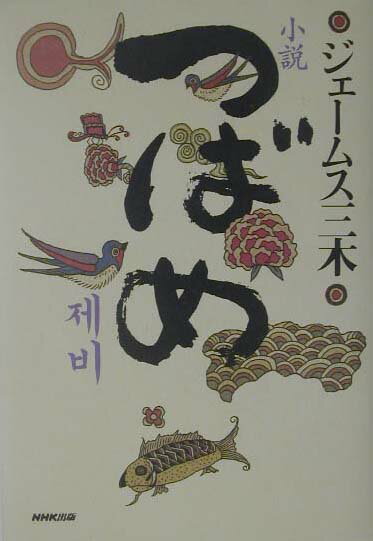 ジェームス三木
小説
つばめ
제비
NHK出版